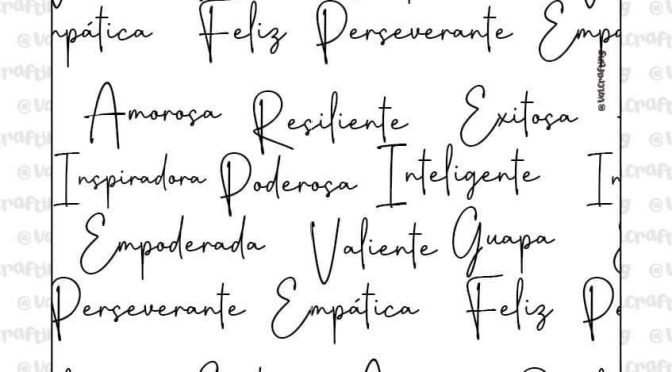 mpática Feliz Perseverante Emp
Amorosa Resiliente Exitosa
Inspiradora Poderosa Inteligente In
Empoderada Valiente Guapa
Perseverante Empática Feliz Pe
@valcrafting